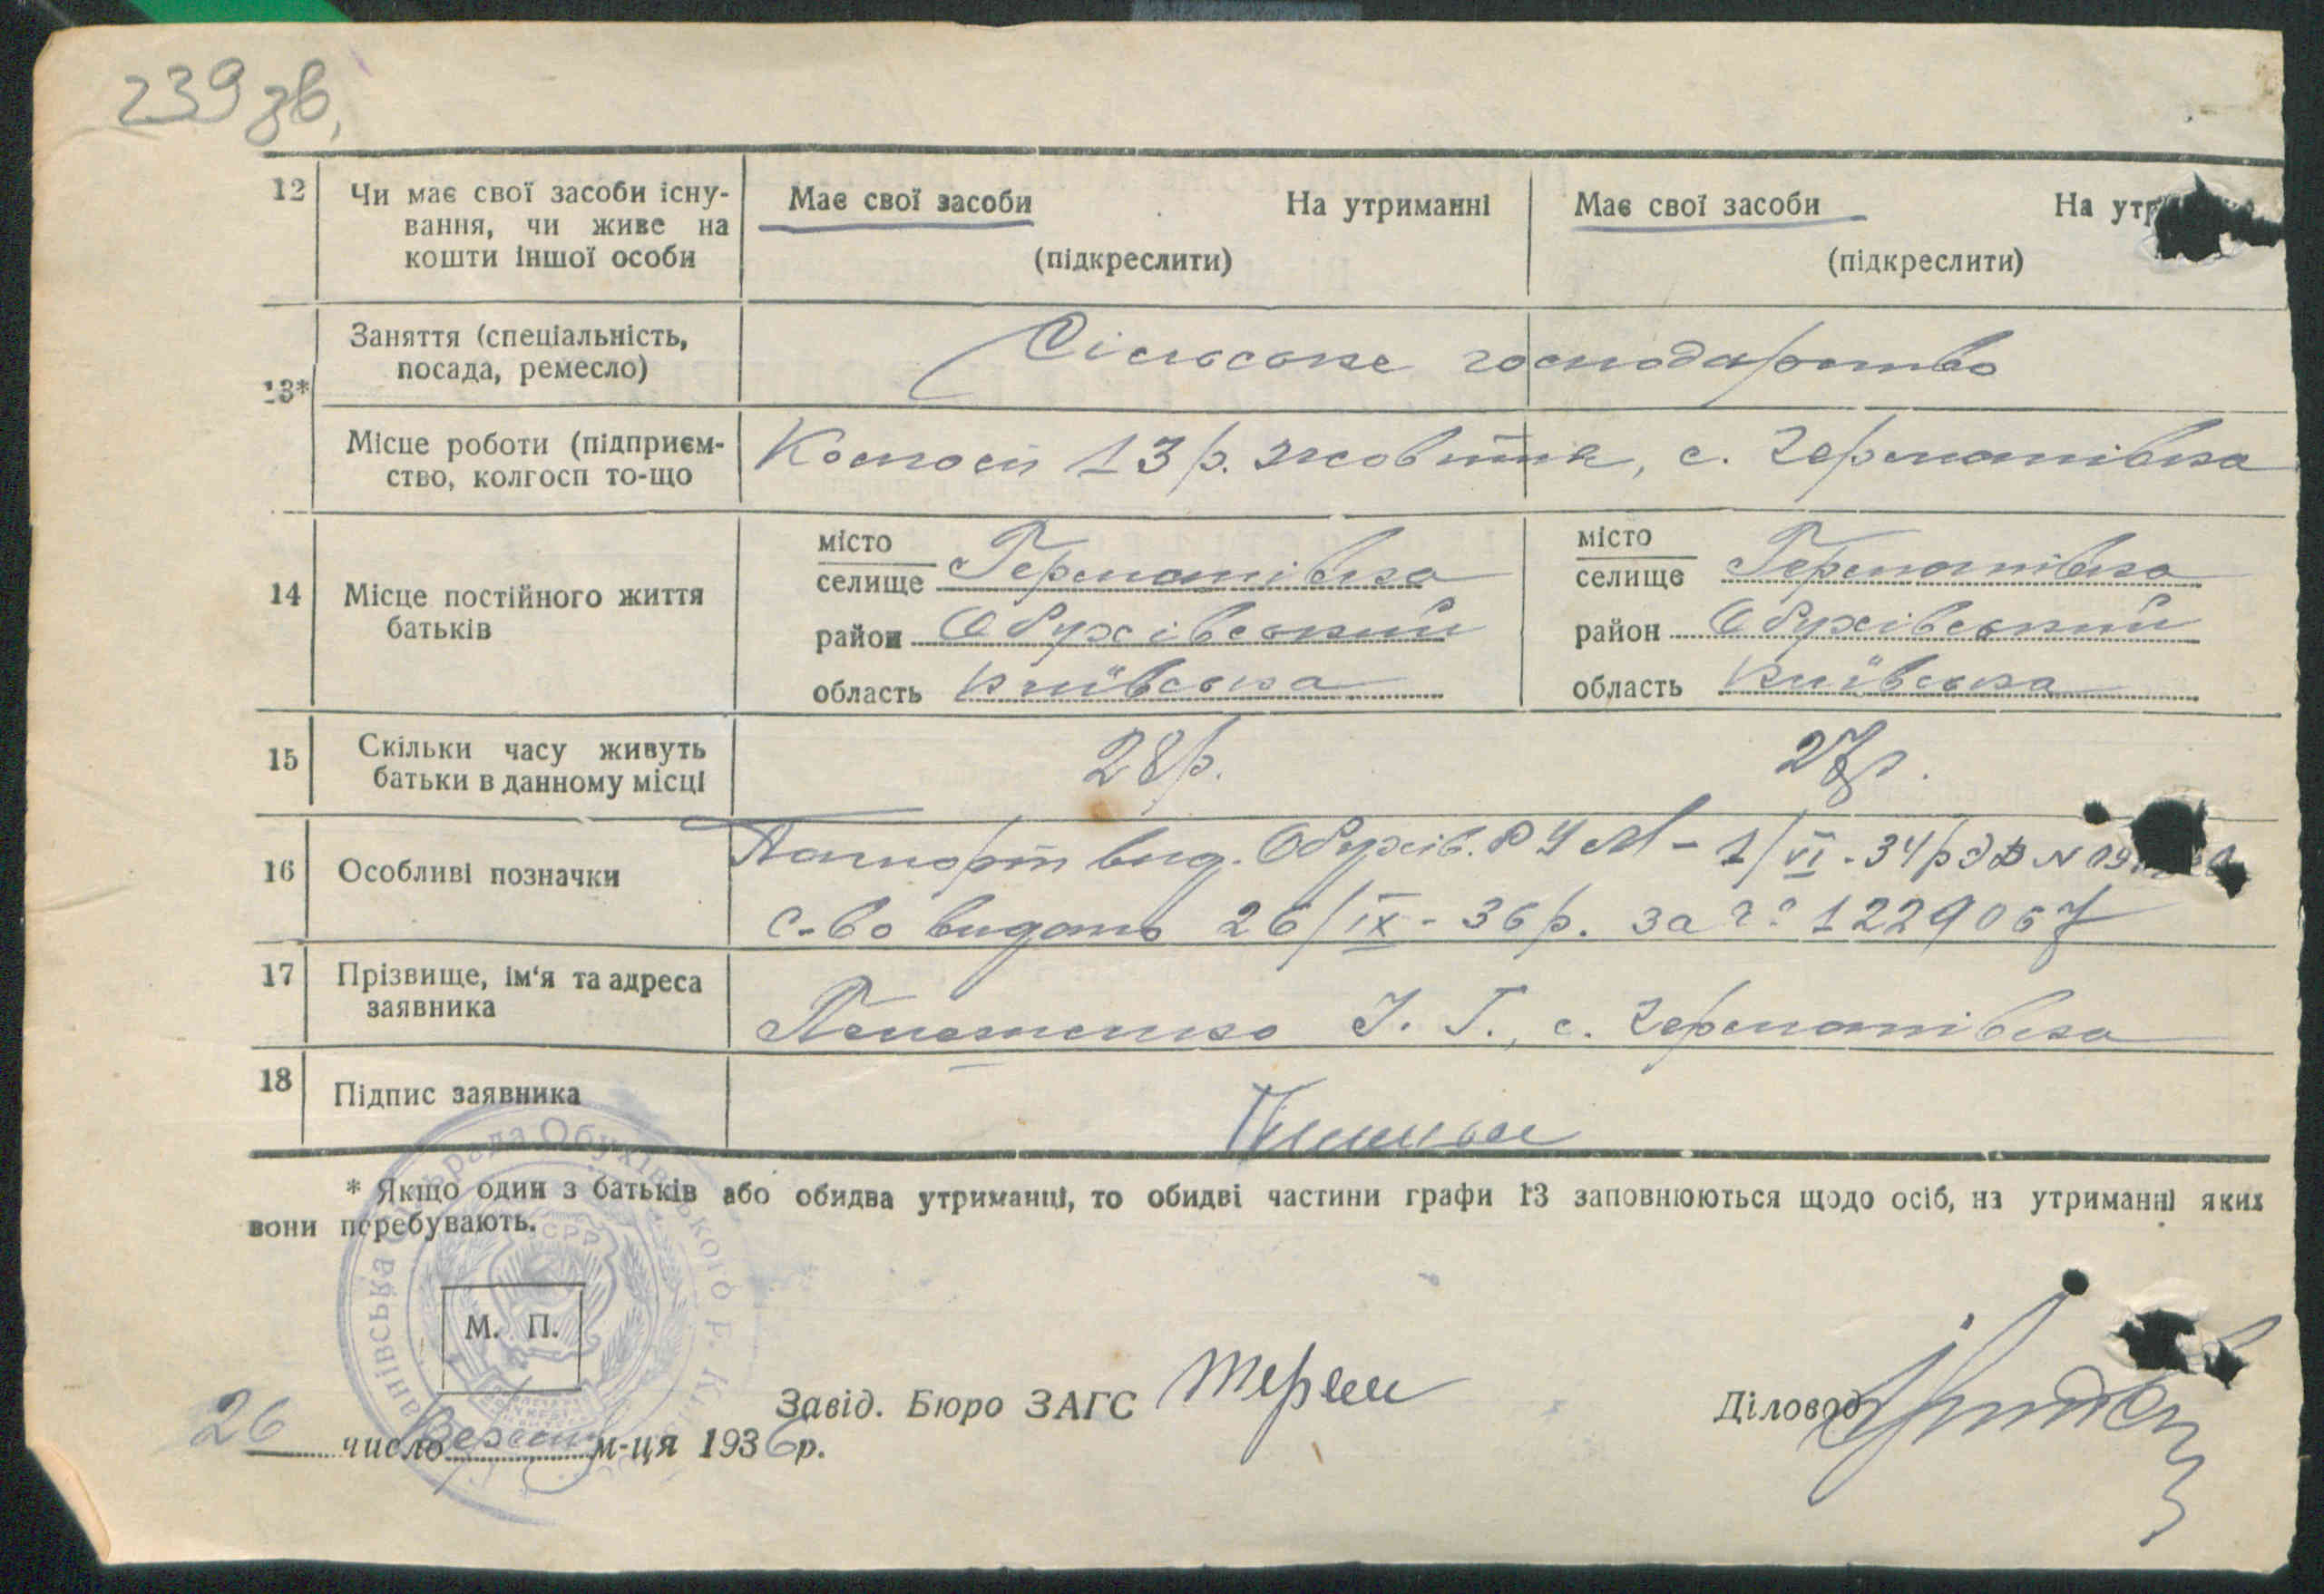 239 зв.
12 Чи має свої засоби існу-
вання, чи живе на
кошти іншої особи
Має свої засоби На утриманні
(підкреслити)
Має свої засоби На утр
(підкреслити)
13*
Заняття (спеціальність,
посада, ремесло)
Сільське господарство
Місце роботи (підприєм-
ство, колгосп то-що
Колгосп 13 р. жовтня, с. Германівка
14 Місце постійного життя
батьків
місто
селище Германівка
район Обухівський
область Київська
місто
селище Германівка
район Обухівський
область Київська
15 Скільки часу живуть
батьки в данному місці
28 р. 27 р.
16 Особливі позначки
Паспорт вид. Обухів. РУМ - 1/VI - 34 р
с-во видано 26/IX - 36 р. за № 1229067
17 Прізвище, ім'я та адреса
заявника
І. Г., с. Германівка
18 Підпис заявника
* Якщо один з батьків або обидва утриманці, то обидві частини графи 13 заповнюються щодо осіб, на утриманні яких
вони перебувають.
М. П.
рада Обухівського р. Київс
анівська
СРР
Завід. Бюро ЗАГС
Діловод
26 число Вересня м-ця 1936 р.